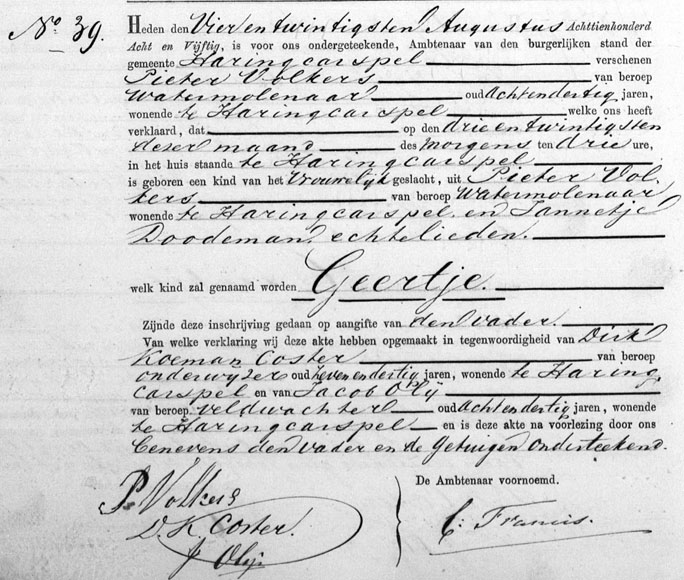 No. 39.
Heden den Vier en twintigsten Augustus Achttienhonderd
Acht en Vijftig, is voor ons ondergeteekende, Ambtenaar van den burgerlijken stand der
gemeente Haringcarspel verschenen
Pieter Volkers van beroep
Watermolenaar oud Acht en dertig jaren,
wonende te Haringcarspel welke ons heeft
verklaard, dat op den drie en twintigsten
dezer maand des Morgens ten drie ure,
in het huis staande te Haringcarspel
is geboren een kind van het Vrouwelijk geslacht, uit Pieter Vol
kers van beroep Watermolenaar
wonende te Haringcarspel en Jannetje
Doodeman, echtelieden.
welk kind zal genaamd worden Geertje.
Zijnde deze inschrijving gedaan op aangifte van den vader.
Van welke verklaring wij deze akte hebben opgemaakt in tegenwoordigheid van Dirk
Koeman Coster van beroep
onderwijzer oud Zeven en dertig jaren, wonende te Haring
carspel en van Jacob Olij
van beroep veldwachter oud Acht en dertig jaren, wonende
te Haringcarspel en is deze akte na voorlezing door ons
benevens den vader en de Getuigen Onderteekend.
De Ambtenaar voornoemd.
P. Volkers
D. K. Coster.
J Olij
C. Francis.